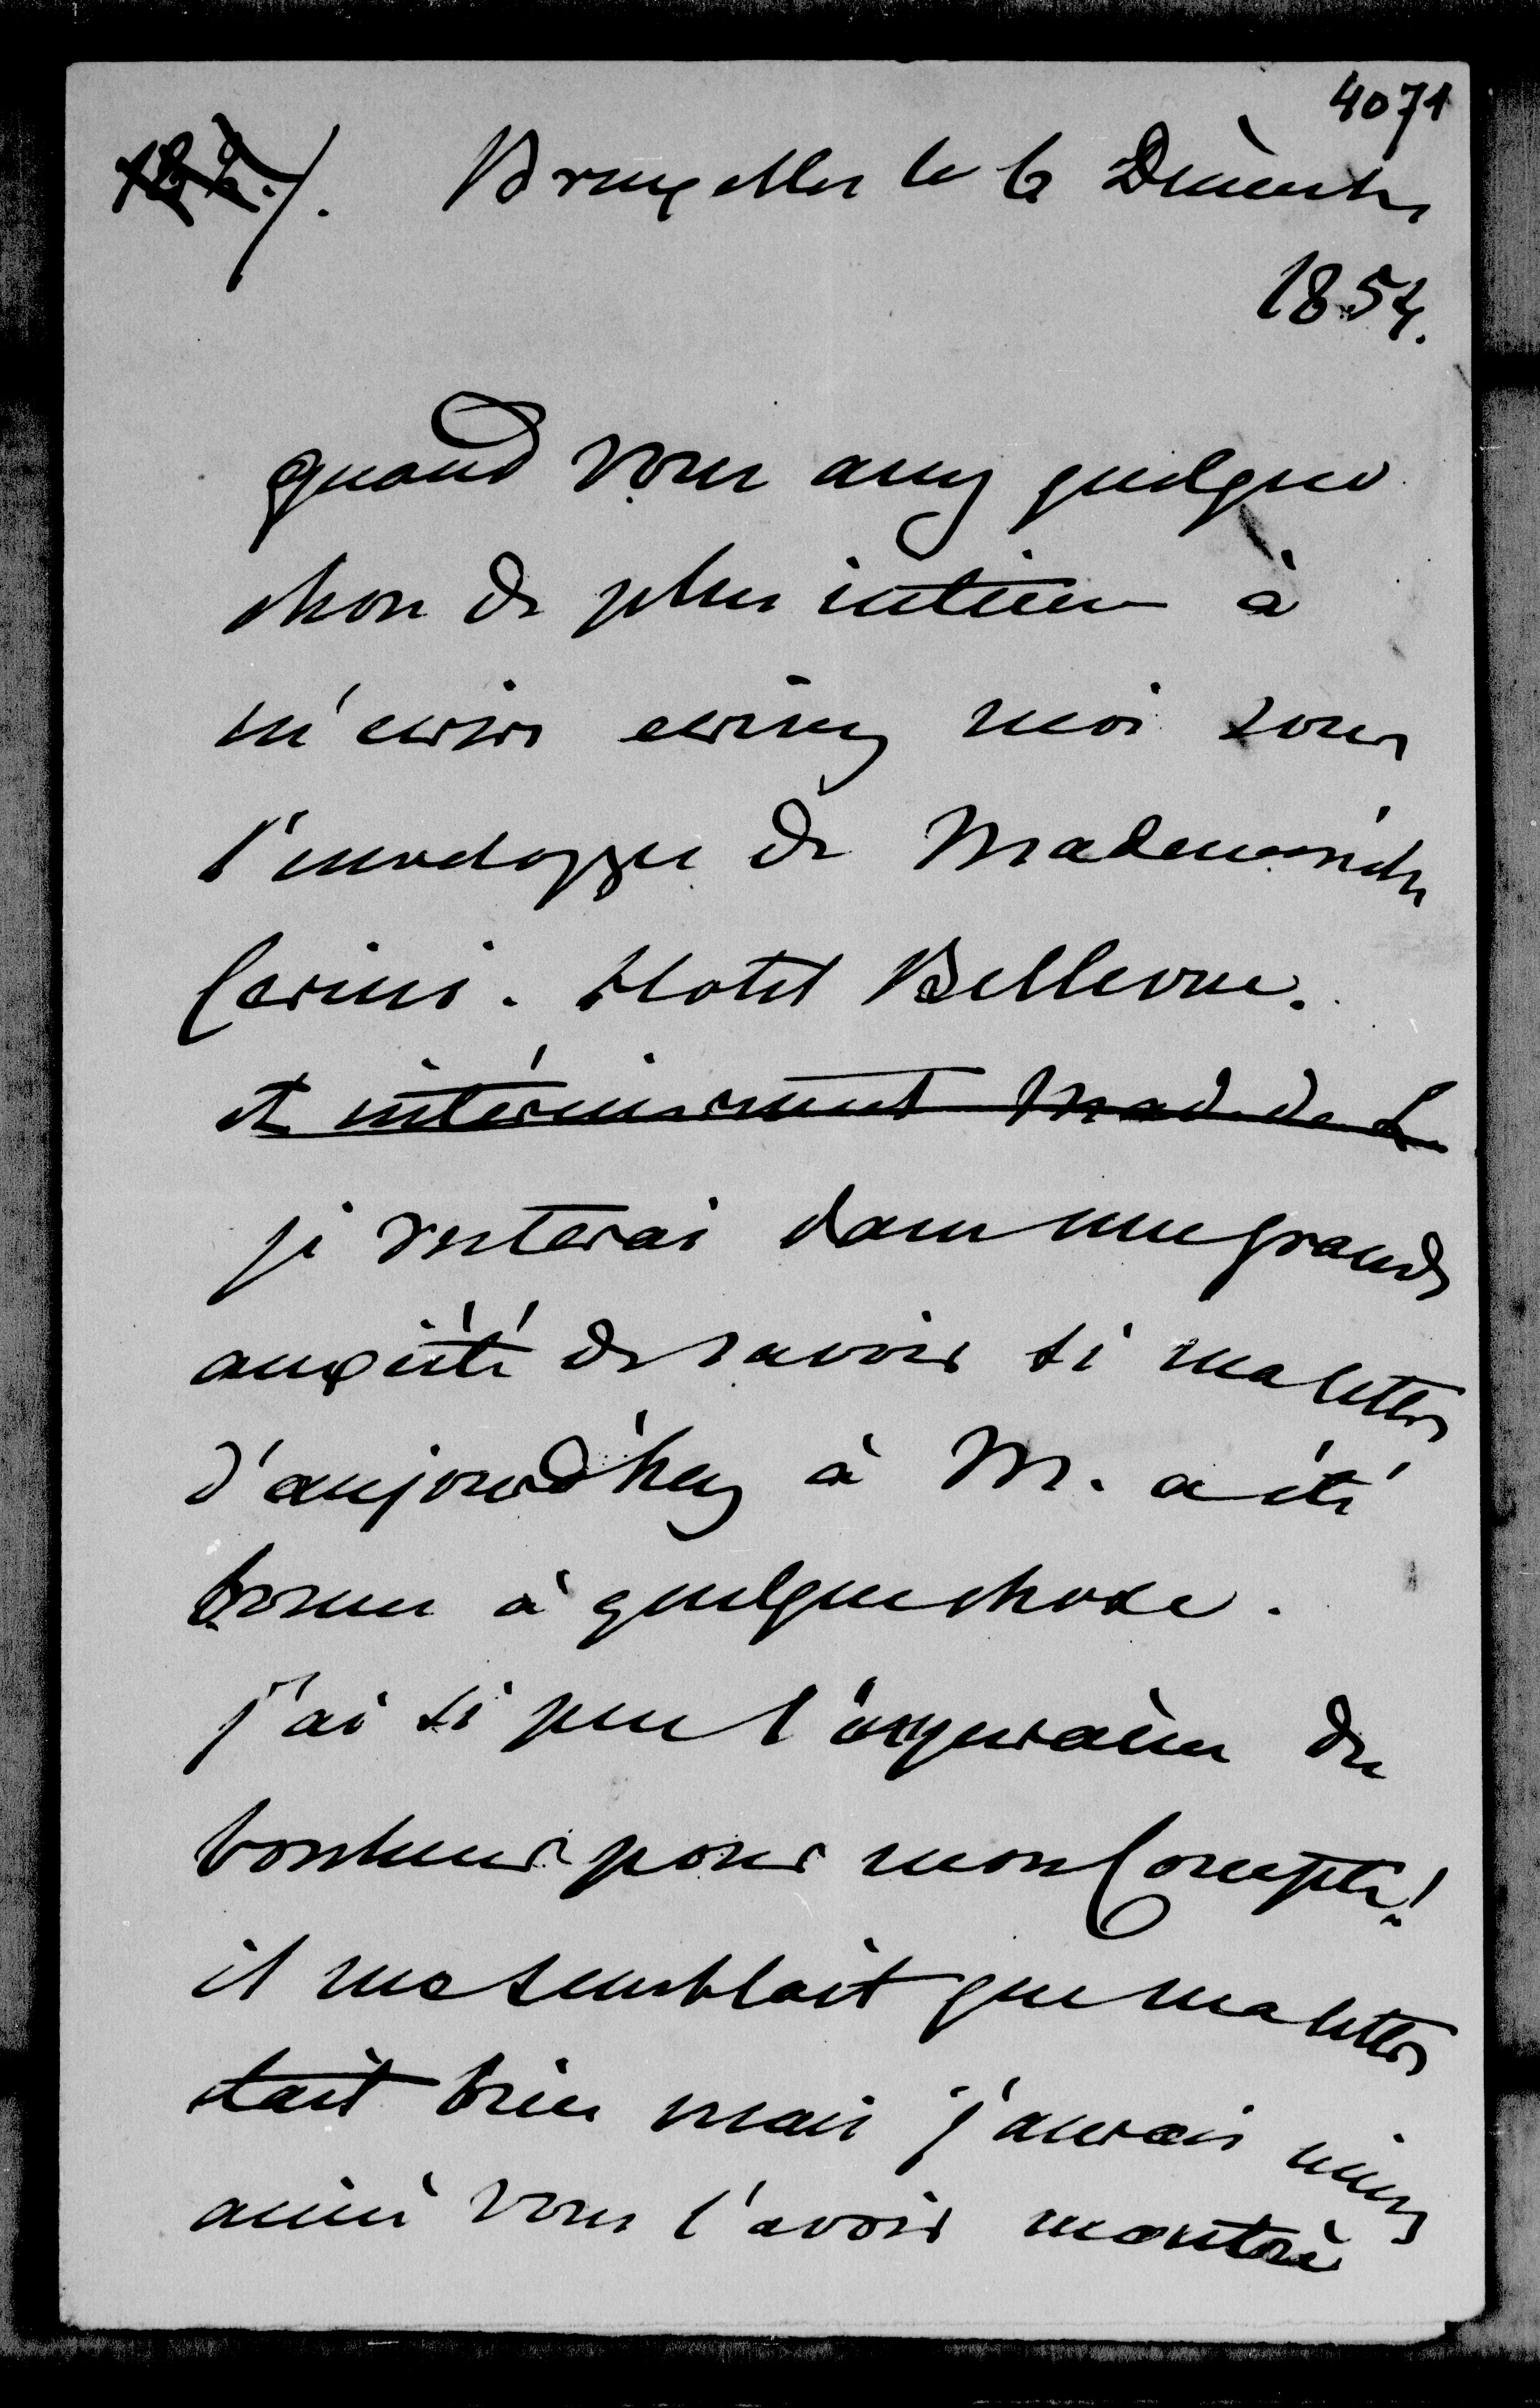 4071
Bruxelles le 6 Décembre
1854.
quand vous avez quelque
chose de plus intime à
m'ecrire ecrivez moi sous
l'enveloppe de Mademoiselle
Carini. Hotel Bellevue.
et intérieurement Mad. de L
je resterai dans une grande
anxiété de savoir si ma lettre
d'aujourd'huy à M. a été
bonne à quelque chose.
j'ai si peu l'experience du
bonheur pour mon Compte!
il me semblait que ma lettre
etait bien mais j'aurais mieux
aimé vous l'avoir montrè